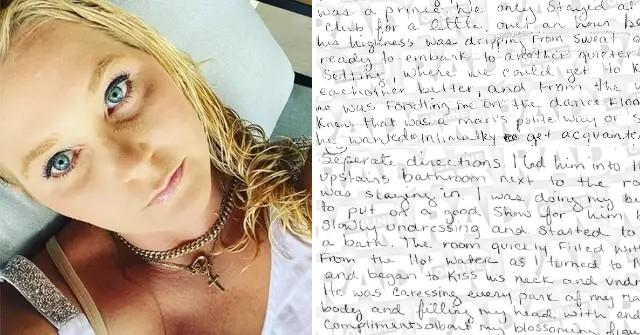 was a prince. We only stayed a
club for a little over an hour
his highness was dripping from sweat
ready to embark to another quieter
setting, where we could get to k
eachother better, and from the
he was fondling me on the dance
knew that was a man's polite way
he wanted to get acquante
Seperate directions. I led him into th
upstairs bathroom next to the ro
was staying in. I was doing my be
to put on a good show for him
slowly undressing and started to
a bath. The room quickly filled wi
from the hot water as I turned to h
and began to kiss his neck and und
He was caressing every part of my n
body and filling my head with en
compliments about my blossoming figu